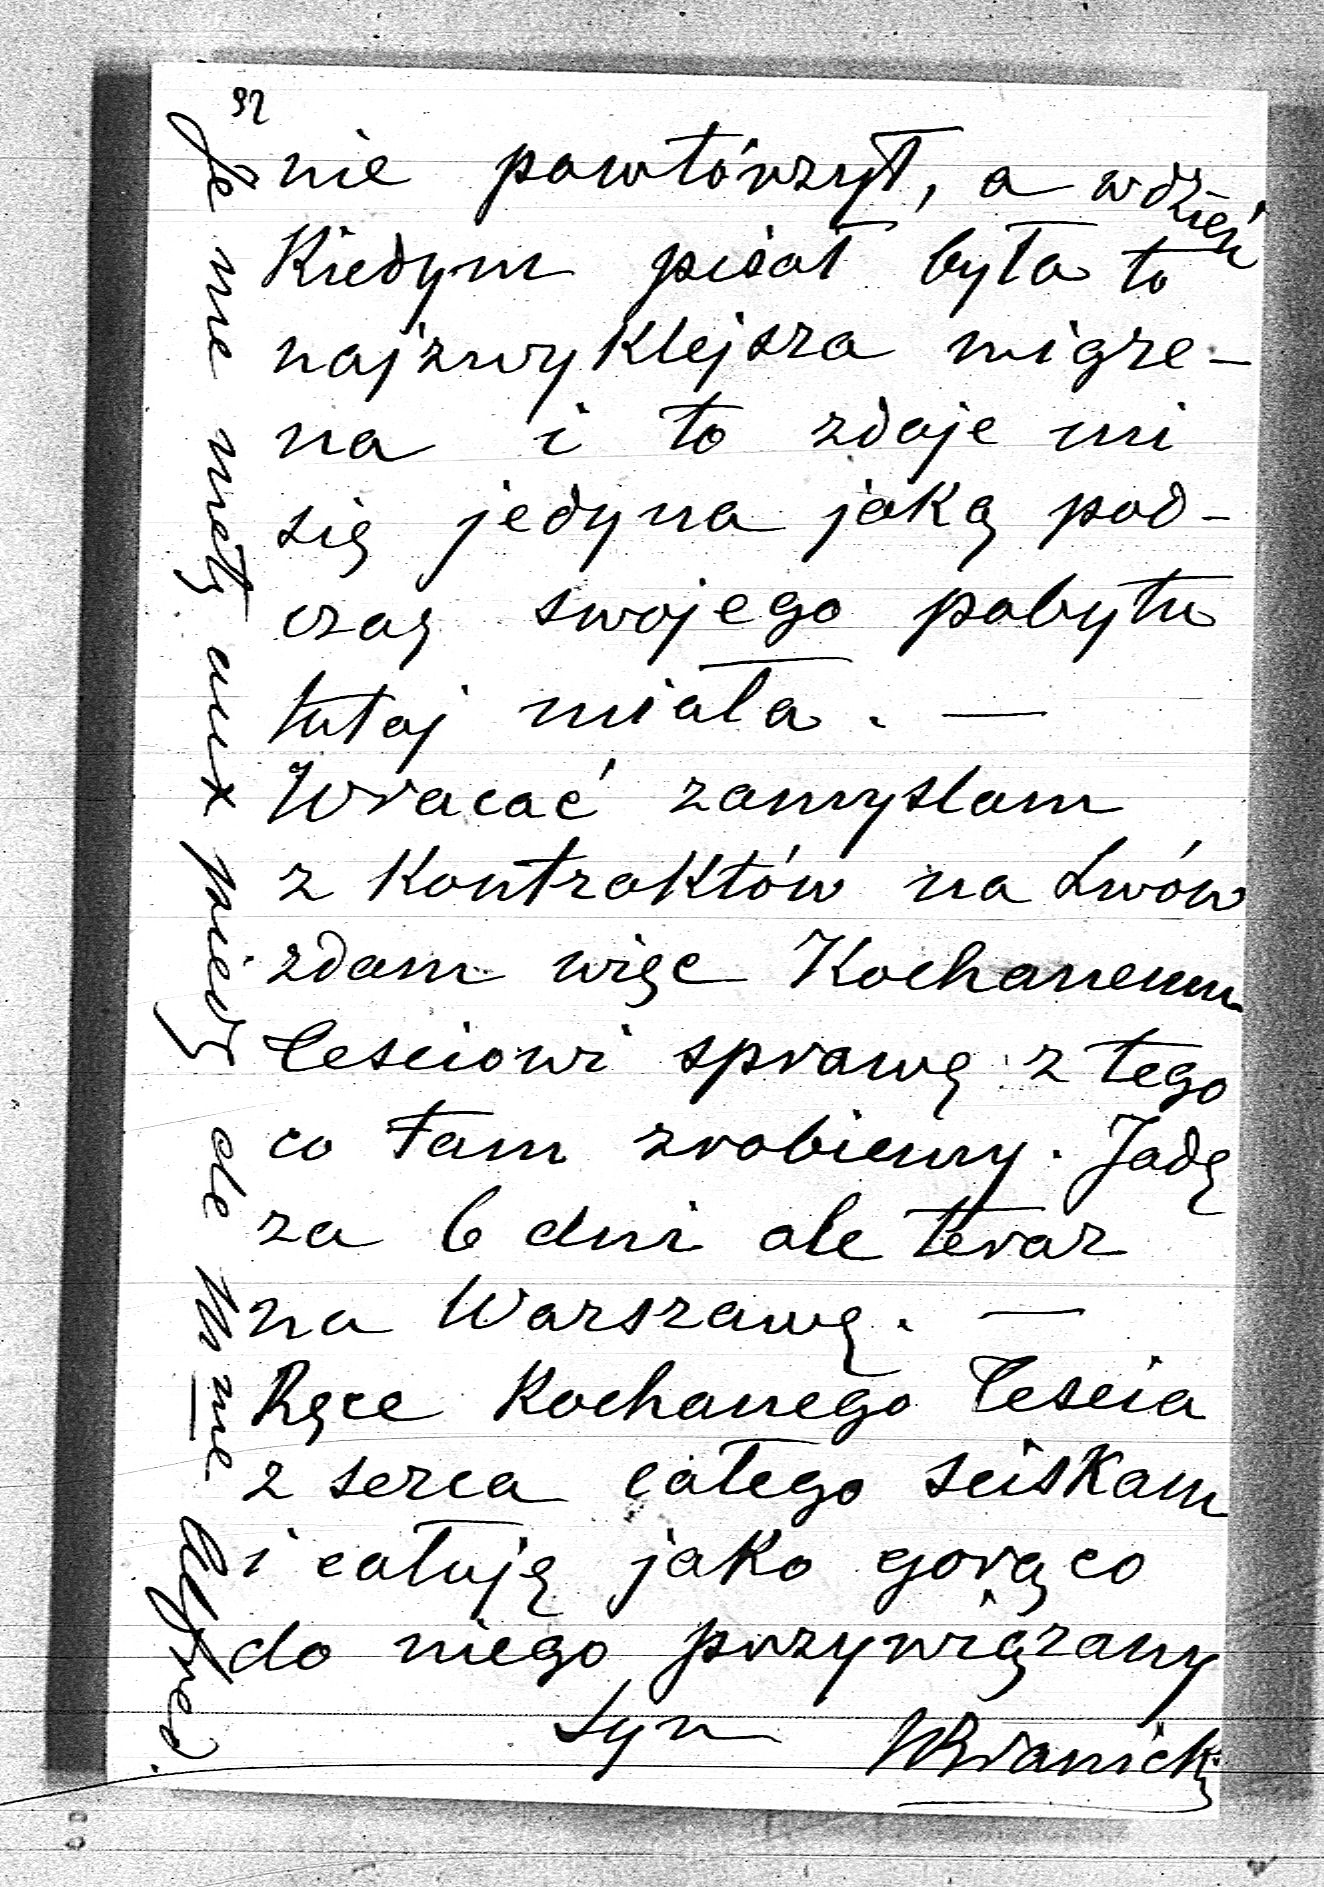 92
nie powtórzył, a w dzień
Kiedym pisał była to
najzwyklejsza migre-
na i to zdaje mi
się jedyna jaką pod-
czas swojego pobytu
tutaj miała. —
Wracać zamyslam
z Kontraktów na Lwów
zdam więc Kochanemu
Cesciowi sprawę z tego
co tam zrobiemy. Jadę
za 6 dni ale teraz
na Warszawę. —
Ręce Kochanego Tescia
z serca całego sciskam
i całuję jako gorąco
do niego przywiązany
Syn WBranicki
Je me mets aux pieds de M me Alfred.